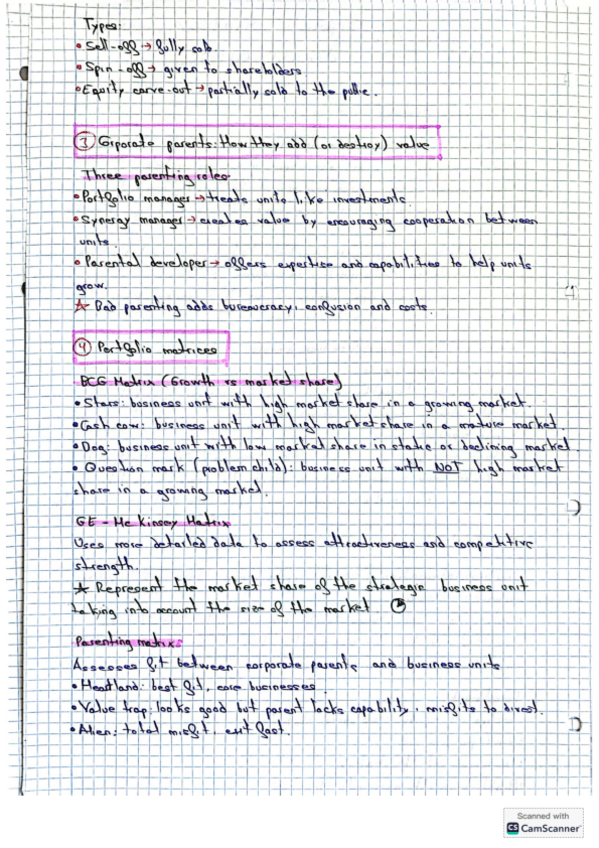 Types:
• Sell-off → fully sold.
• Spin-off → given to shareholders
• Equity carve-out → partially sold to the public.
③ Corporate parents: How they add (or destroy) value
Three parenting roles
• Portfolio manager → treats units like investments.
• Synergy manager → creates value by encouraging cooperation between
units.
• Parental developer → offers expertise and capabilities to help units
grow.
☆ Bad parenting adds bureaucracy, confusion and costs.
④ Portfolio matrices
BCG Matrix (Growth vs market share)
• Stars: business unit with high market share in a growing market.
• Cash cow: business unit with high market share in a mature market.
• Dog: business unit with low market share in static or declining market.
• Question mark (problem child): business unit with NOT high market
share in a growing market.
GE - McKinsey Matrix
Uses more detailed data to assess attractiveness and competitive
strength.
☆ Represent the market share of the strategic business unit
taking into account the size of the market
Parenting matrix:
Assesses fit between corporate parents and business units
• Heartland: best fit, core businesses.
• Value trap: looks good but parent lacks capability, misfits to divest.
• Alien: total misfit, exit fast.
Scanned with
CS CamScanner